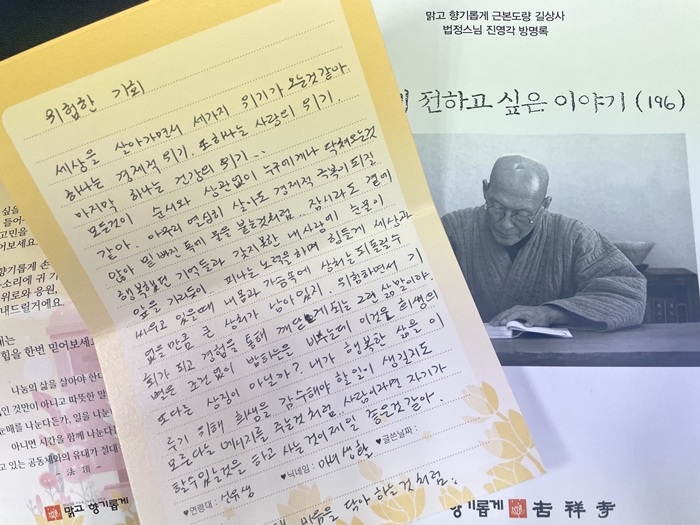 맑고 향기롭게 근본도량 길상사
법정스님 진영각 방명록
전하고 싶은 이야기 (196)
위험한 기회
세상을 살아가면서 세가지 위기가 오는것같아.
하나는 경제적 위기. 또하나는 사랑의 위기.
마지막 하나는 건강의 위기...
모든것이 순서와 상관없이 누구에게나 닥쳐오는것
같아. 아무리 열심히 살아도 경제적 극복이 되질
않아 밑 빠진 독에 물을 붓는것처럼... 잠시라도 곁에
행복했던 기억들과 갖지못한 내사랑에 눈물이
앞을 가리듯이 피나는 노력을하며 힘들게 세상과
싸우고 있을때 내몸과 가슴속에 상처는 되돌릴수
없을만큼 큰 상처가 남아있지. 위험하면서 기
회가 되고 경험을 통해 깨닫게 되는 그런 삶말이야.
뻗은 조건없이 밤하늘을 비추는데 이것을 희생의
또다는 상징이 아닐까? 내가 행복한 삶을 이
루기 위해 희생을 감수해야 할일이 생길지도
모른다는 메시지를 주는것처럼... 사람이라면 자기가
할수있는것을 하고 사는것이 제일 좋은것같아.
♥연령대 : 선우생 ♥닉네임 : 아내 생활 ♥글쓴날짜 :
마음을 닦아 하는것처럼.
싶을
들어
고민을
어보세요.
향기롭게 손
소리에 귀 기
위로와 응원,
내드릴거예요.
때는
힘을 한번 믿어보세요
나눔의 삶을 살아야 한다
인 것만이 아니고 따뜻한 말
눈매를 나눈다든가, 일을 나눈
아니면 시간을 함께 나눈다
고 있는 공동체와의 유대가 절대
- 法頂 -
맑고 향기롭게
향기롭게 吉祥寺